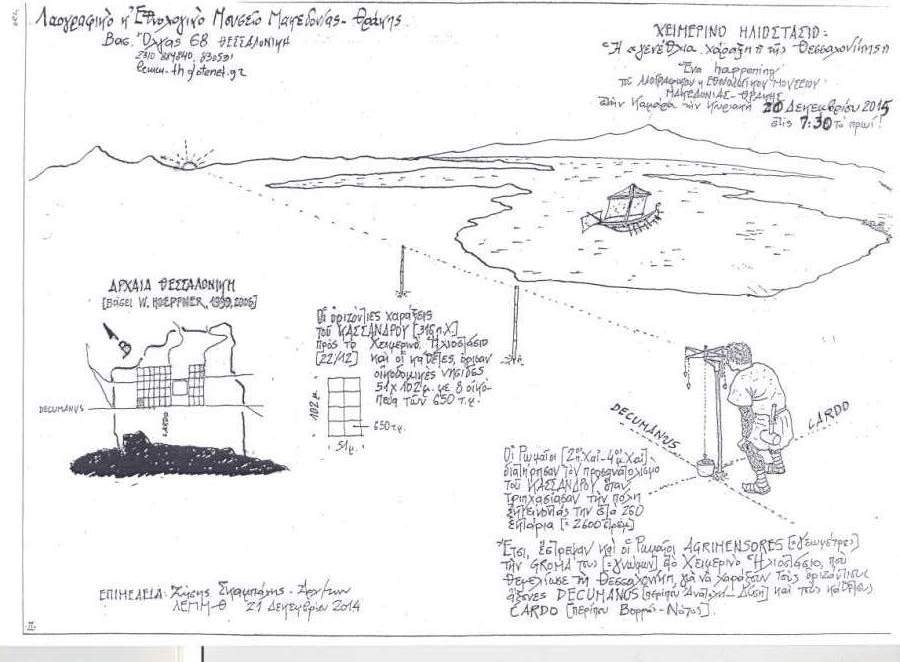 Λαογραφικό κ' Εθνολογικό Μουσείο Μακεδονίας - Θράκης.
Βασ. Όλγας 68 ΘΕΣΣΑΛΟΝΙΚΗ
2310
ΧΕΙΜΕΡΙΝΟ ΗΛΙΟΣΤΑΣΙΟ:
Ἡ γενέθλια χάραξη τῆς Θεσσαλονίκης
Ἕνα happening
τοῦ ΛΑΟΓΡΑΦΙΚΟΥ κ ΕΘΝΟΛΟΓΙΚΟΥ ΜΟΥΣΕΙΟΥ
ΜΑΚΕΔΟΝΙΑΣ-ΘΡΑΚΗΣ
στὴν Καμάρα τὴν Κυριακή 20 Δεκεμβρίου 2015
στὶς 7:30 τὸ πρωί!
ΑΡΧΑΙΑ ΘΕΣΣΑΛΟΝΙΚΗ
[βάσει W. HOEPFNER, 1999, 2006]
Β
DECUMANUS
CARDO
Οἱ ὁριζόντιες χαράξεις
τοῦ ΚΑΣΣΑΝΔΡΟΥ [315 π.Χ]
πρὸς τὸ Χειμερινὸ Ἡλιοστάσιο
[22/12] καὶ οἱ κάθετες, ὅρισαν
οἰκοδομικὲς νησίδες
51 x 102 μ. με 8 οἰκό-
πεδα τῶν 650 τ.μ.
102 μ.
650 τ.μ.
51 μ.
DECUMANUS
CARDO
Οἱ Ρωμαῖοι [2ος π.Χαι - 4ος μ.Χαι]
διατήρησαν τὸν προσανατολισμὸ
τοῦ ΚΑΣΣΑΝΔΡΟΥ ὅταν
τριπλασίασαν τὴν πόλη
ἐπεκτείνοντας την στα 260
ἑκτάρια [= 2600 στρέμ]
Ἔτσι, ἔστρεψαν καὶ οἱ Ρωμαῖοι AGRIMENSORES [=Γεωμέτρες]
τὴν GROMA τους [=γνώμων] στὸ Χειμερινὸ Ἡλιοστάσιο, ποὺ
θεμελίωσε τὴ Θεσσαλονίκη, γιὰ νὰ χαράξουν τοὺς ὁριζόντιους
ἄξονες DECUMANUS [περίπου Ἀνατολή - Δύση] καὶ τοὺς κάθετους
CARDO [περίπου Βορρᾶς - Νότος].
ΕΠΙΜΕΛΕΙΑ:
ΛΕΜΜ-Θ 21 Δεκεμβρίου 2014